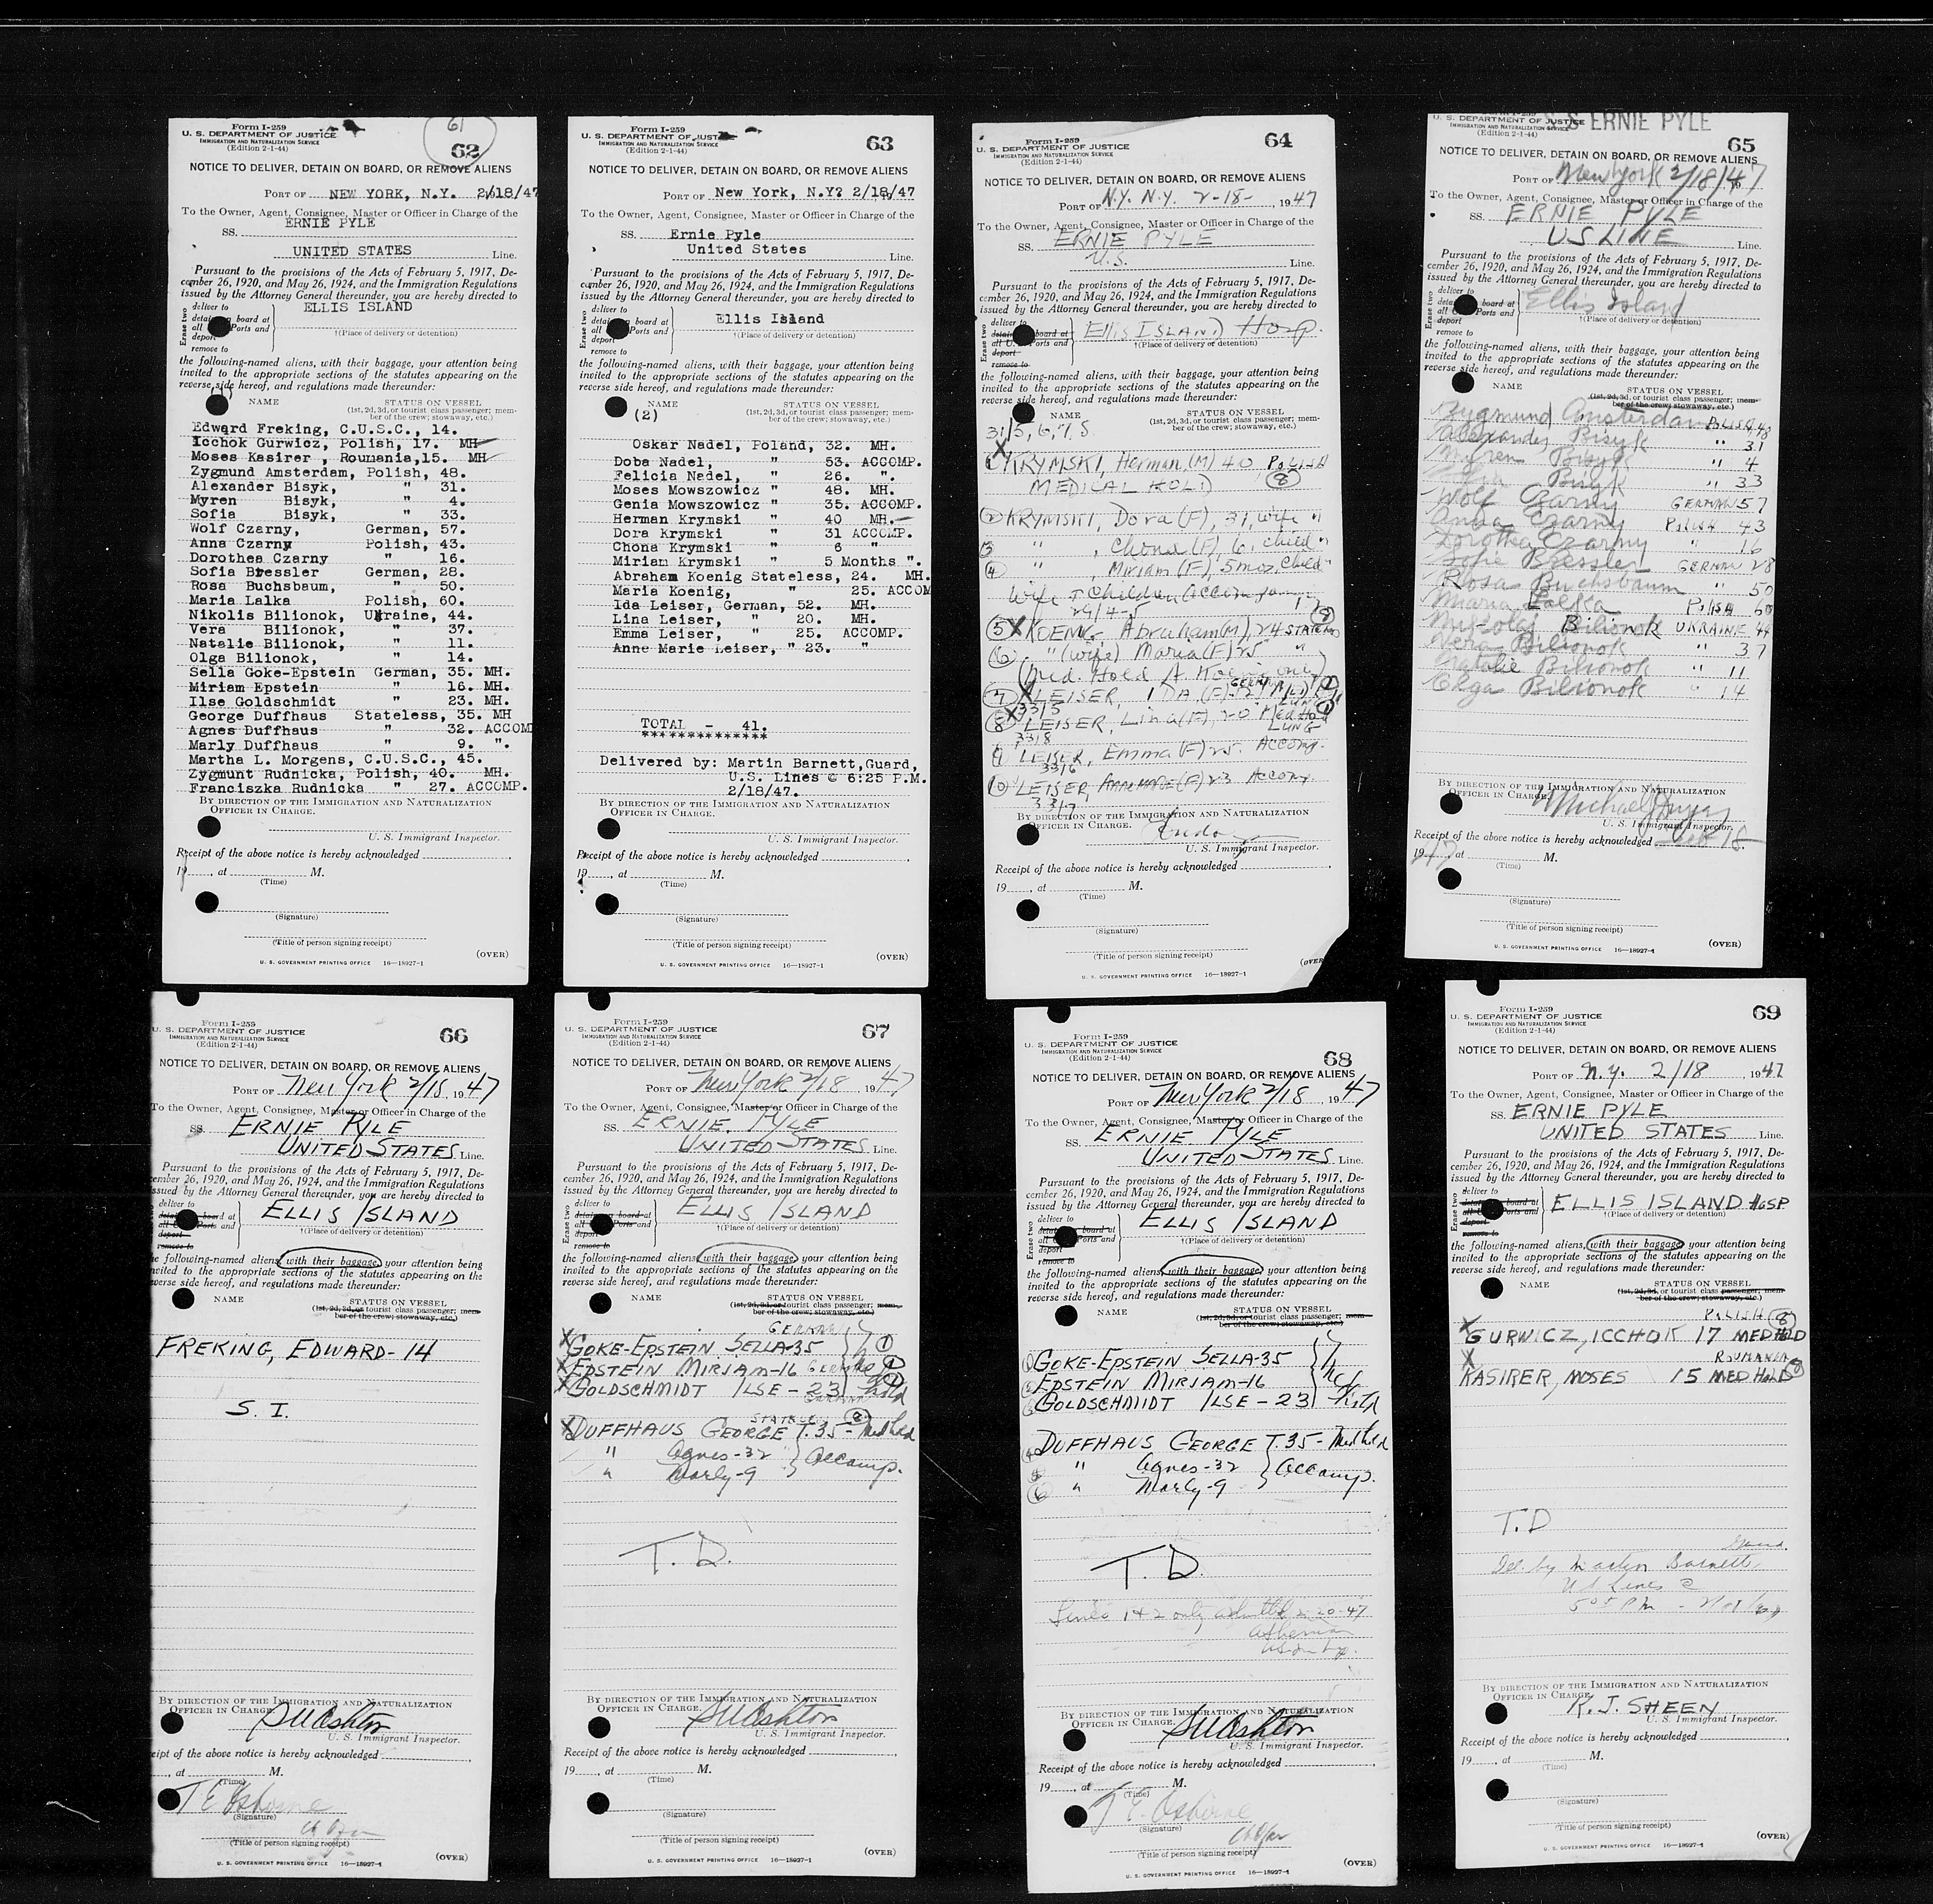 Form I-259
U. S. DEPARTMENT OF JUSTICE
IMMIGRATION AND NATURALIZATION SERVICE
(Edition 2-1-44)
61
62
NOTICE TO DELIVER, DETAIN ON BOARD, OR REMOVE ALIENS
PORT OF NEW YORK, N.Y. 2/18/47
To the Owner, Agent, Consignee, Master or Officer in Charge of the
SS. ERNIE PYLE
UNITED STATES Line.
Pursuant to the provisions of the Acts of February 5, 1917, De-
cember 26, 1920, and May 26, 1924, and the Immigration Regulations
issued by the Attorney General thereunder, you are hereby directed to
Erase two
deliver to
ELLIS ISLAND
board at
all Ports and
†(Place of delivery or detention)
deport
remove to
the following-named aliens, with their baggage, your attention being
invited to the appropriate sections of the statutes appearing on the
reverse side hereof, and regulations made thereunder:
NAME STATUS ON VESSEL
(1st, 2d, 3d, or tourist class passenger; mem-
ber of the crew; stowaway, etc.)
Edward Freking, C.U.S.C., 14.
Icchok Gurwicz, Polish, 17. MH
Moses Kasirer , Roumania,15. MH
Zygmund Amsterdam, Polish, 48.
Alexander Bisyk, " 31.
Myren Bisyk, " 4.
Sofia Bisyk, " 33.
Wolf Czarny, German, 57.
Anna Czarny Polish, 43.
Dorothea Czarny " 16.
Sofia Bressler German, 28.
Rosa Buchsbaum, " 50.
Maria Lalka Polish, 60.
Nikolis Bilionok, Ukraine, 44.
Vera Bilionok, " 37.
Natalie Bilionok, " 11.
Olga Bilionok, " 14.
Sella Goke-Epstein German, 35. MH.
Miriam Epstein " 16. MH.
Ilse Goldschmidt " 23. MH.
George Duffhaus Stateless, 35. MH
Agnes Duffhaus " 32. ACCOM
Marly Duffhaus " 9. ".
Martha L. Morgens, C.U.S.C., 45.
Zygmunt Rudnicka, Polish, 40. MH.
Franciszka Rudnicka " 27. ACCOMP.
BY DIRECTION OF THE IMMIGRATION AND NATURALIZATION
OFFICER IN CHARGE.
U. S. Immigrant Inspector.
Receipt of the above notice is hereby acknowledged
19, at M.
(Time)
(Signature)
(Title of person signing receipt)
(OVER)
U. S. GOVERNMENT PRINTING OFFICE 16—18927-1
Form I-259
U. S. DEPARTMENT OF JUSTICE
IMMIGRATION AND NATURALIZATION SERVICE
(Edition 2-1-44)
63
NOTICE TO DELIVER, DETAIN ON BOARD, OR REMOVE ALIENS
PORT OF New York, N.Y? 2/18/47
To the Owner, Agent, Consignee, Master or Officer in Charge of the
SS. Ernie Pyle
United States Line.
Pursuant to the provisions of the Acts of February 5, 1917, De-
cember 26, 1920, and May 26, 1924, and the Immigration Regulations
issued by the Attorney General thereunder, you are hereby directed to
Erase two
deliver to
board at
Ellis Island
all Ports and
†(Place of delivery or detention)
deport
remove to
the following-named aliens, with their baggage, your attention being
invited to the appropriate sections of the statutes appearing on the
reverse side hereof, and regulations made thereunder:
NAME STATUS ON VESSEL
(2)
(1st, 2d, 3d, or tourist class passenger; mem-
ber of the crew; stowaway, etc.)
Oskar Nadel, Poland, 32. MH.
Doba Nadel, " 53. ACCOMP.
Felicia Nadel, " 26. ".
Moses Mowszowicz " 48. MH.
Genia Mowszowicz " 35. ACCOMP.
Herman Krymski " 40 MH.
Dora Krymski " 31 ACCOMP.
Chona Krymski " 6 "
Miriam Krymski " 5 Months ".
Abraham Koenig Stateless, 24. MH.
Maria Koenig, " 25. ACCOM
Ida Leiser, German, 52. MH.
Lina Leiser, " 20. MH.
Emma Leiser, " 25. ACCOMP.
Anne Marie Leiser, " 23. "
TOTAL - 41.
**************
Delivered by: Martin Barnett,Guard,
U.S. Lines @ 6:25 P.M.
2/18/47.
BY DIRECTION OF THE IMMIGRATION AND NATURALIZATION
OFFICER IN CHARGE.
U. S. Immigrant Inspector.
Receipt of the above notice is hereby acknowledged
19, at M.
(Time)
(Signature)
(Title of person signing receipt)
(OVER)
U. S. GOVERNMENT PRINTING OFFICE 16—18927-1
Form I-259
U. S. DEPARTMENT OF JUSTICE
IMMIGRATION AND NATURALIZATION SERVICE
(Edition 2-1-44)
64
NOTICE TO DELIVER, DETAIN ON BOARD, OR REMOVE ALIENS
PORT OF N.Y. N.Y. 2-18-, 1947
To the Owner, Agent, Consignee, Master or Officer in Charge of the
SS. ERNIE PYLE
U.S. Line.
Pursuant to the provisions of the Acts of February 5, 1917, De-
cember 26, 1920, and May 26, 1924, and the Immigration Regulations
issued by the Attorney General thereunder, you are hereby directed to
Erase two
deliver to
board at
ELLIS ISLAND Hosp.
all U. Ports and
†(Place of delivery or detention)
deport
remove to
the following-named aliens, with their baggage, your attention being
invited to the appropriate sections of the statutes appearing on the
reverse side hereof, and regulations made thereunder:
NAME STATUS ON VESSEL
(1st, 2d, 3d, or tourist class passenger; mem-
ber of the crew; stowaway, etc.)
31/5, 6, 7, 8
X
1 KRYMSKI, Herman (M) 40 POLISH
MEDICAL HOLD 8
2 KRYMSKI, Dora (F), 31, wife "
3 " , Chona (F), 6, child "
4 " , Miriam (F), 5 mos. Child "
Wife & Children Accompanying
29/4-5
5 X KOENIG Abraham (M) 24 STATELESS
6 " (wife) Maria (F) 25 "
(Med. Hold A. Koenig only)
7 X LEISER, IDA (F) 52 Med
33/5
8 LEISER, Lina (F), 20 Med Hold
LUNG
33/8
9 LEISER, Emma (F) 25. Accomp.
33/6
10 LEISER, ANNMARIE (F) 23 Accomp.
33/7
BY DIRECTION OF THE IMMIGRATION AND NATURALIZATION
OFFICER IN CHARGE.
U. S. Immigrant Inspector.
Receipt of the above notice is hereby acknowledged
19, at M.
(Time)
(Signature)
(Title of person signing receipt)
(OVER
U. S. GOVERNMENT PRINTING OFFICE 16—18927-1
S S ERNIE PYLE
U. S. DEPARTMENT OF JUSTICE
IMMIGRATION AND NATURALIZATION SERVICE
(Edition 2-1-44)
65
NOTICE TO DELIVER, DETAIN ON BOARD, OR REMOVE ALIENS
PORT OF New York 2/18/47
To the Owner, Agent, Consignee, Master or Officer in Charge of the
SS. ERNIE PYLE
US LINE Line.
Pursuant to the provisions of the Acts of February 5, 1917, De-
cember 26, 1920, and May 26, 1924, and the Immigration Regulations
issued by the Attorney General thereunder, you are hereby directed to
Erase two
deliver to
board at
Ellis Island
all Ports and
†(Place of delivery or detention)
deport
remove to
the following-named aliens, with their baggage, your attention being
invited to the appropriate sections of the statutes appearing on the
reverse side hereof, and regulations made thereunder:
NAME STATUS ON VESSEL
(1st, 2d, 3d, or tourist class passenger; mem-
ber of the crew; stowaway, etc.)
Zygmund Amsterdam POLISH 48
Alexander Bisyk " 31
Myren Bisyk " 4
Sofia Bisyk " 33
Wolf Czarny GERMAN 57
Anna Czarny POLISH 43
Dorothea Czarny " 16
Sofie Bressler GERMAN 28
Rosa Buchsbaum " 50
Maria Lalka POLISH 60
Nikolas Bilionok UKRAINE 44
Vera Bilionok " 37
Natalie Bilionok " 11
Olga Bilionok " 14
BY DIRECTION OF THE IMMIGRATION AND NATURALIZATION
OFFICER IN CHARGE.
Michael
U. S. Immigrant Inspector.
Receipt of the above notice is hereby acknowledged Feb 18
1947, at M.
(Time)
(Signature)
(Title of person signing receipt)
(OVER)
U. S. GOVERNMENT PRINTING OFFICE 16—18927-1
Form I-259
U. S. DEPARTMENT OF JUSTICE
IMMIGRATION AND NATURALIZATION SERVICE
(Edition 2-1-44)
66
NOTICE TO DELIVER, DETAIN ON BOARD, OR REMOVE ALIENS
PORT OF New York 2/18, 1947
To the Owner, Agent, Consignee, Master or Officer in Charge of the
SS. ERNIE PYLE
UNITED STATES Line.
Pursuant to the provisions of the Acts of February 5, 1917, De-
cember 26, 1920, and May 26, 1924, and the Immigration Regulations
issued by the Attorney General thereunder, you are hereby directed to
deliver to
board at
ELLIS ISLAND
all Ports and
†(Place of delivery or detention)
deport
remove to
the following-named aliens, with their baggage, your attention being
invited to the appropriate sections of the statutes appearing on the
reverse side hereof, and regulations made thereunder:
NAME STATUS ON VESSEL
(1st, 2d, 3d, or tourist class passenger; mem-
ber of the crew; stowaway, etc.)
FREKING, EDWARD - 14
S. I.
BY DIRECTION OF THE IMMIGRATION AND NATURALIZATION
OFFICER IN CHARGE.
SW Ashton
U. S. Immigrant Inspector.
eipt of the above notice is hereby acknowledged
, at M.
(Time)
T E Osborne
(Signature)
(Title of person signing receipt)
(OVER)
U. S. GOVERNMENT PRINTING OFFICE 16—18927-1
Form I-259
U. S. DEPARTMENT OF JUSTICE
IMMIGRATION AND NATURALIZATION SERVICE
(Edition 2-1-44)
67
NOTICE TO DELIVER, DETAIN ON BOARD, OR REMOVE ALIENS
PORT OF New York 2/18 1947
To the Owner, Agent, Consignee, Master or Officer in Charge of the
SS. ERNIE PYLE
UNITED STATES Line.
Pursuant to the provisions of the Acts of February 5, 1917, De-
cember 26, 1920, and May 26, 1924, and the Immigration Regulations
issued by the Attorney General thereunder, you are hereby directed to
Erase two
deliver to
detain on board at
ELLIS ISLAND
all Ports and
†(Place of delivery or detention)
deport
remove to
the following-named aliens, with their baggage, your attention being
invited to the appropriate sections of the statutes appearing on the
reverse side hereof, and regulations made thereunder:
NAME STATUS ON VESSEL
(1st, 2d, 3d, or tourist class passenger; mem-
ber of the crew; stowaway, etc.)
GERMAN
X GOKE-EPSTEIN SELLA-35 1
X EPSTEIN MIRIAM-16 GERMAN 1
X GOLDSCHMIDT ILSE - 23 hold
GERMAN
STATELESS 8
X DUFFHAUS GEORGE T. 35 - Med hold
" Agnes-32 } Accomp.
" Marly-9
T. D.
BY DIRECTION OF THE IMMIGRATION AND NATURALIZATION
OFFICER IN CHARGE.
SW Ashton
U. S. Immigrant Inspector.
Receipt of the above notice is hereby acknowledged
19, at M.
(Time)
(Signature)
(Title of person signing receipt)
(OVER)
U. S. GOVERNMENT PRINTING OFFICE 16—18927-1
Form I-259
U. S. DEPARTMENT OF JUSTICE
IMMIGRATION AND NATURALIZATION SERVICE
(Edition 2-1-44)
68
NOTICE TO DELIVER, DETAIN ON BOARD, OR REMOVE ALIENS
PORT OF New York 2/18, 1947
To the Owner, Agent, Consignee, Master or Officer in Charge of the
SS. ERNIE PYLE
UNITED STATES Line.
Pursuant to the provisions of the Acts of February 5, 1917, De-
cember 26, 1920, and May 26, 1924, and the Immigration Regulations
issued by the Attorney General thereunder, you are hereby directed to
Erase two
deliver to
board at
ELLIS ISLAND
all Ports and
†(Place of delivery or detention)
deport
remove to
the following-named aliens, with their baggage, your attention being
invited to the appropriate sections of the statutes appearing on the
reverse side hereof, and regulations made thereunder:
NAME STATUS ON VESSEL
(1st, 2d, 3d, or tourist class passenger; mem-
ber of the crew; stowaway, etc.)
1 GOKE-EPSTEIN SELLA-35
2 EPSTEIN MIRIAM-16
3 GOLDSCHMIDT ILSE - 23 hold
4 DUFFHAUS GEORGE T. 35 - Med hold
5 " Agnes-32 } Accomp.
6 " Marly-9
T. D.
Lines 1 & 2 only, admitted 2-20-47
BY DIRECTION OF THE IMMIGRATION AND NATURALIZATION
OFFICER IN CHARGE.
SW Ashton
U. S. Immigrant Inspector.
Receipt of the above notice is hereby acknowledged
19, at M.
(Time)
T E. Osborne
(Signature)
(Title of person signing receipt)
(OVER)
U. S. GOVERNMENT PRINTING OFFICE 16—18927-1
Form I-259
U. S. DEPARTMENT OF JUSTICE
IMMIGRATION AND NATURALIZATION SERVICE
(Edition 2-1-44)
69
NOTICE TO DELIVER, DETAIN ON BOARD, OR REMOVE ALIENS
PORT OF N.Y. 2/18, 1947
To the Owner, Agent, Consignee, Master or Officer in Charge of the
SS. ERNIE PYLE
UNITED STATES Line.
Pursuant to the provisions of the Acts of February 5, 1917, De-
cember 26, 1920, and May 26, 1924, and the Immigration Regulations
issued by the Attorney General thereunder, you are hereby directed to
Erase two
deliver to
board at
ELLIS ISLAND HOSP
all Ports and
†(Place of delivery or detention)
deport
remove to
the following-named aliens, with their baggage, your attention being
invited to the appropriate sections of the statutes appearing on the
reverse side hereof, and regulations made thereunder:
NAME STATUS ON VESSEL
(1st, 2d, 3d, or tourist class passenger; mem-
ber of the crew; stowaway, etc.)
POLISH 8
X GURWICZ, ICCHOK 17 MED HOLD
X ROUMANIA
KASIRER, MOSES 15 MED HOLD 8
T.D
Guard.
Del. by Martin Barnett,
US Lines @
5 05 PM -
BY DIRECTION OF THE IMMIGRATION AND NATURALIZATION
OFFICER IN CHARGE.
R. J. SHEEN
U. S. Immigrant Inspector.
Receipt of the above notice is hereby acknowledged
19, at M.
(Time)
(Signature)
(Title of person signing receipt)
(OVER)
U. S. GOVERNMENT PRINTING OFFICE 16—18927-1